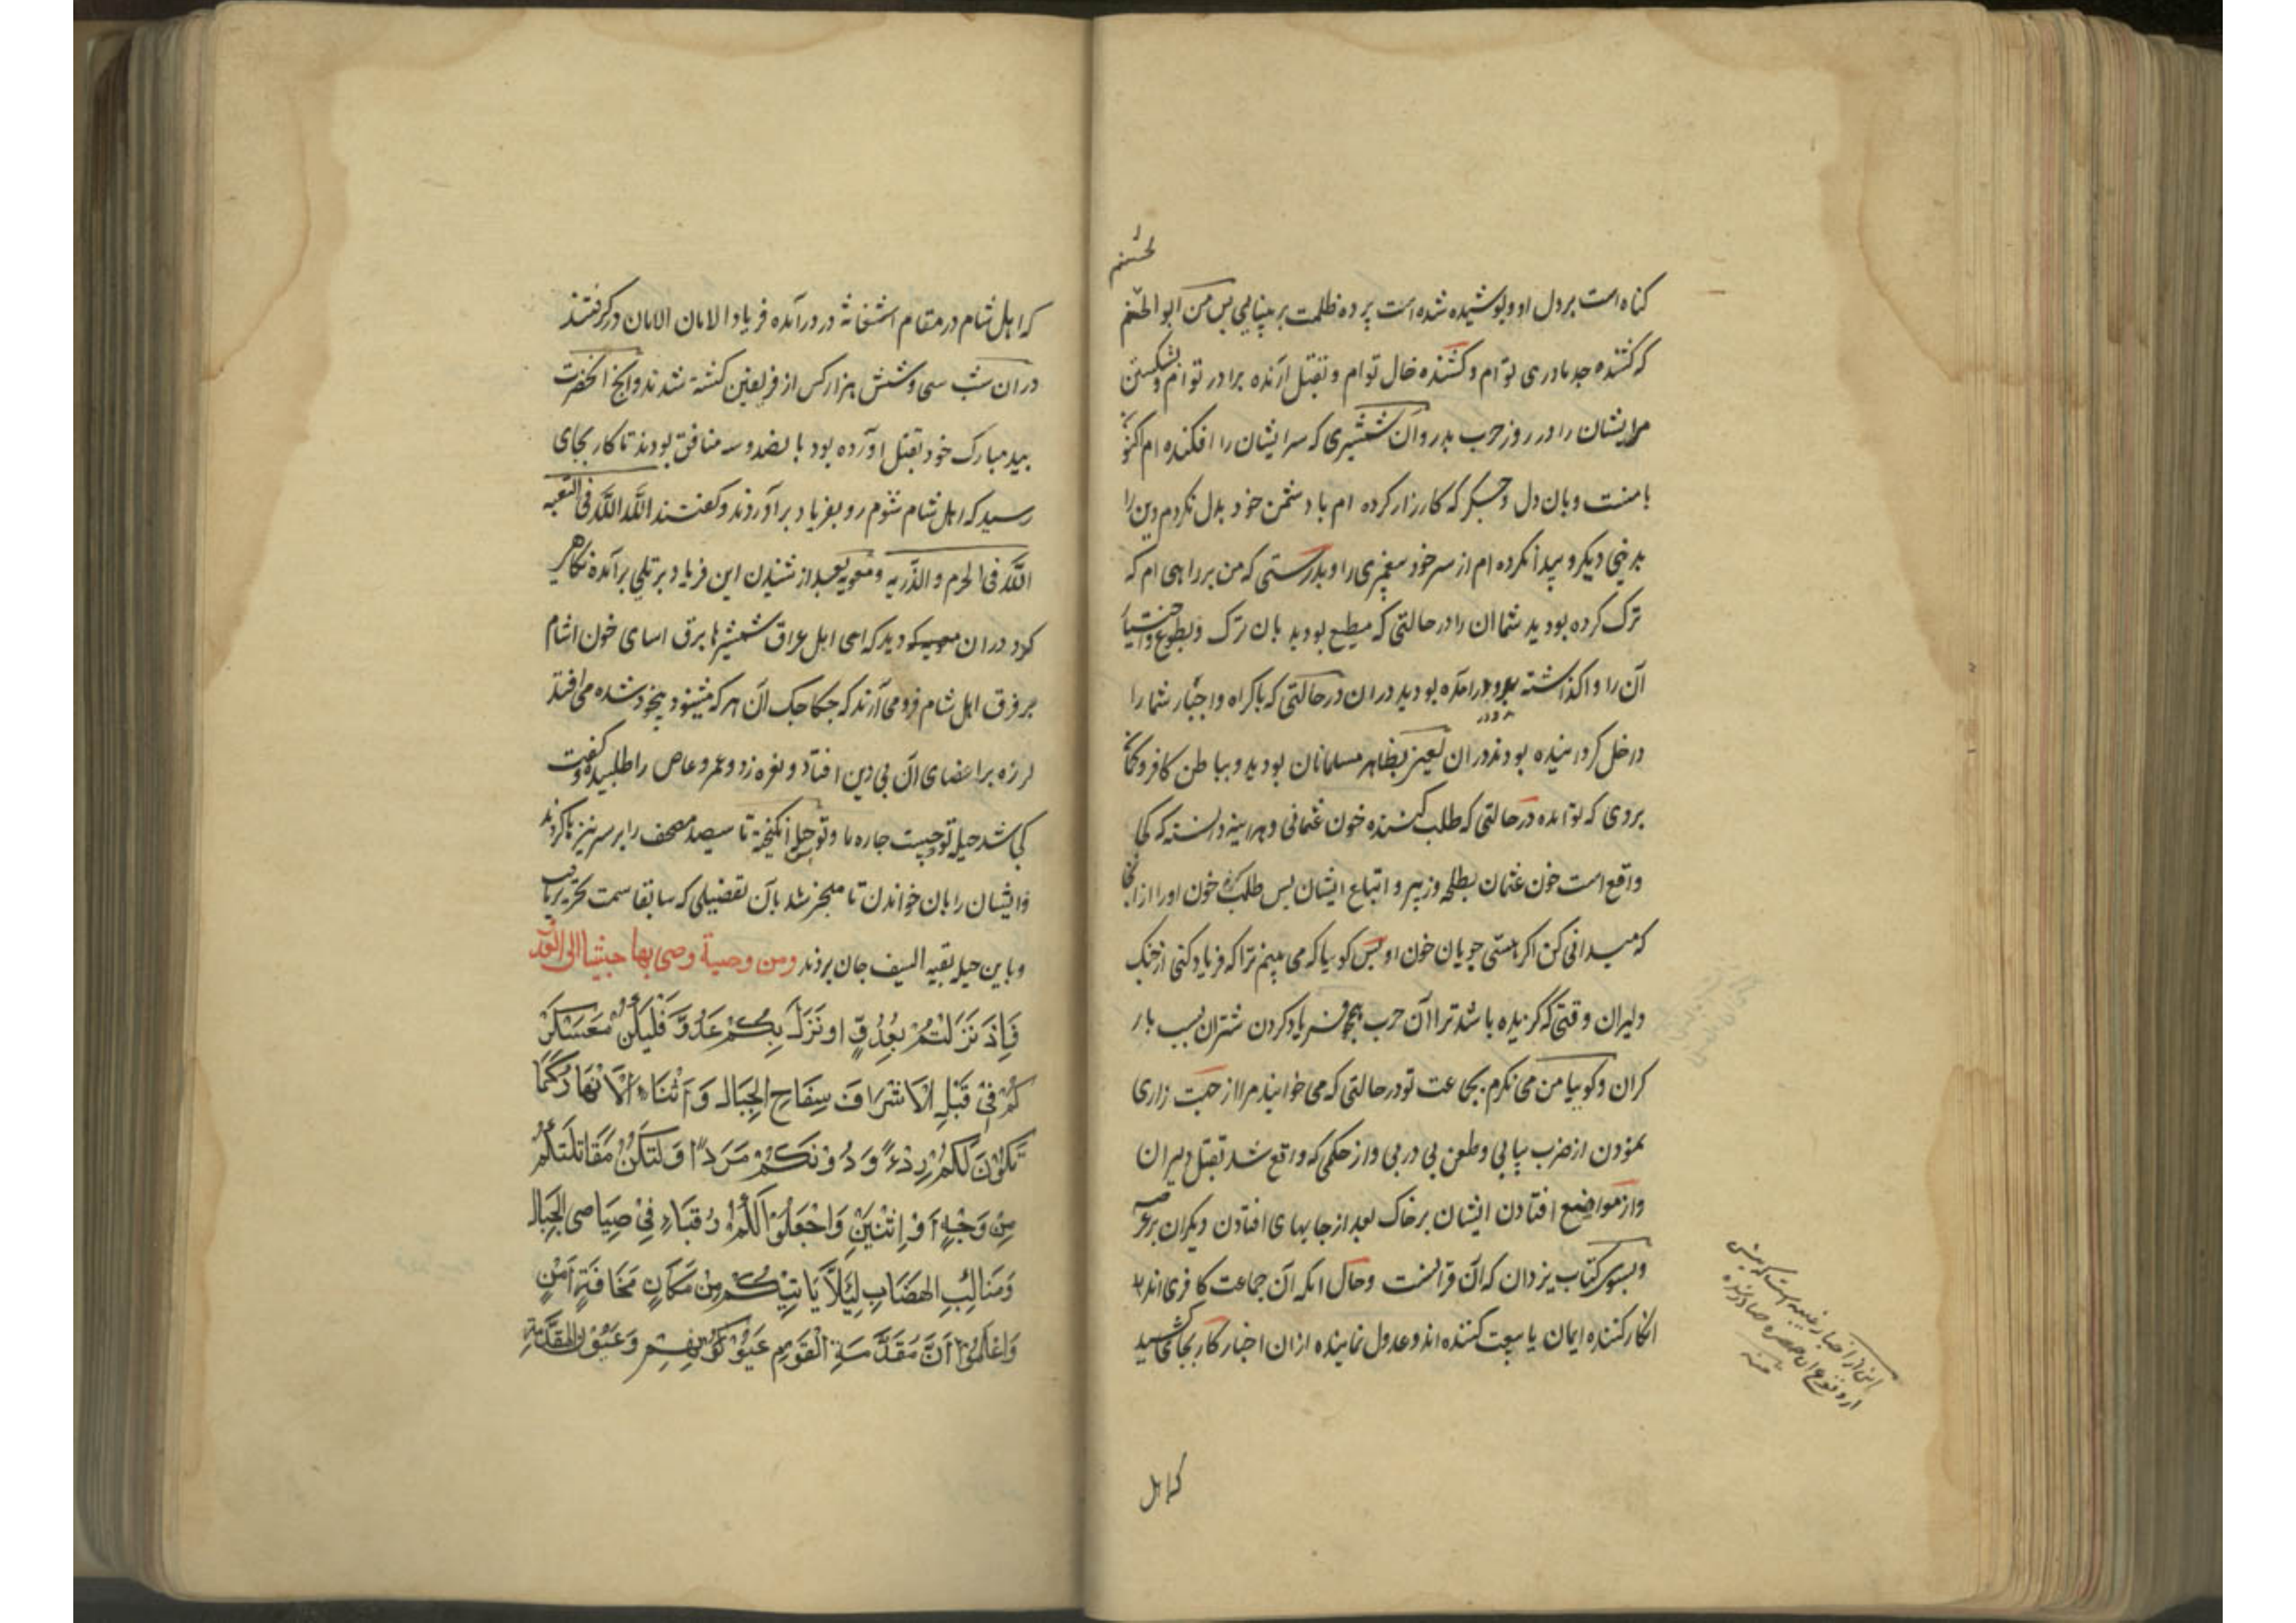 لحسنم
كناه است بر دل او و پوشيده شده است پرده ظلمت بر بينايى پس من ابو الحسنم
كه كشنده جد مادرى توام و كشنده خال توام و بقتل ارنده برادر توام و شكستن
مر ايشان را در روز حرب بدر و ان شمشيرى كه سر ايشان را افكنده ام اكنون
با منست و بان دل و جگر كه كارزار كرده ام با دشمن خود بدل نكردم دين را
بدينى ديكر و پيدا نكرده ام از سر خود پيغمبرى را و بدرستى كه من بر راهى ام كه
ترك كرده بوديد شما ان را در حالتى كه مطيع بوديد بان ترك و بطوع و اختيار
آن را واكذاشته بوديد و درامده بوديد در ان در حالتى كه باكراه و اجبار شما را
درخل كردانيده بودند در ان يعنى بظاهر مسلمانان بوديد و بباطن كافر و كمان
بردى كه تو آمده در حالتى كه طلب كننده خون عثمانى و هراينه دانسته كه كجا
واقع است خون عثمان بطلحه و زبير و اتباع ايشان پس طلب كن خون او را از انجا
كه ميدانى كن اكر هستى جويان خون او پس كوييا كه مى بينم ترا كه فرياد كنى از جنك
دليران وقتى كه كزيده باشد ترا آن حرب همچو فرياد كردن شتران بسبب بار
كران و كوييا من مى نكرم بجماعت تو در حالتى كه مى خوانيد مرا از جهت زارى
نمودن از ضرب پياپى و طعن پى در پى و از حكمى كه واقع شد بقتل دليران
و از مواضع افتادن ايشان بر خاك بعد از جايهاى افتادن ديكران
و بسوى كتاب يزدان كه آن قرآنست و حال انكه آن جماعت كافرى اند
انكار كننده ايمان يا بيعت كننده اند و عدول نماينده از ان اخبار كار بجائى كشيد
اين از اخبار غيبيه است كه پيش
از وقوع ان حضرت صادر شده
منه
كه اهل
كه اهل شام در مقام استغاثه در درآمده فرياد الامان الامان در كرفتند
در ان شب سى و شش هزار كس از فريقين كشته شدند و انچه انحضرت
بيد مبارك خود بقتل اورده بود پانصد و سه منافق بودند تا كار بجاى
رسيد كه اهل شام شوم رو بفرياد برآوردند و كفتند اللّه اللّه فى البقيه
اللّه فى الحرم و الذّريه و معويه بعد از شنيدن اين فرياد بر تلى برآمده نكاهى
كرد در ان معركه ديد كه اى اهل عراق شمشيرها برق اساى خون اشام
بر فرق اهل شام فرو مى آرند كه چكاچك آن هر كه ميشنود بيخود شده مى افتد
لرزه بر اعضاى آن بى دين افتاد و نعره زد و عمرو عاص را طلبيد و كفت
كى شد حيله تو چيست چاره ما و تو حيله انكيخته تا سيصد مصحف را بر سر نيزها كردند
و ايشان را بان خواندن تا منجر شد بآن تفضيلى كه سابقا سمت تحرير يافت
و باين حيله بقيه السيف جان بردند ومن وصية وصى بها جيشا الى العدو
فَاِذَ نَزَلتُمْ بِعُدُوٍّ او نَزَلَ بِكُمْ عَدُوٌّ فَلْيَكُنْ مُعَسْكَرُ
كُمْ فِىْ قُبُلِ الْاَشْرَافِ سِفَاحِ الجِبَالِ وَ اَثْنَاءِ الْاَنْهَارِ كَيْمَا
تَكُوْنَ لَكُمْ رِدْءً وَ دُوْنَكُمْ مَرَدًّا وَلتَكُنْ مُقَاتِلَتُكُمْ
مِنْ وَجْهٍ اَوْ اِثْنَيْنِ وَ اجْعَلُوْا لَكُمْ رُقَبَاءِ فِىْ صِيَاصِى الجِبَالِ
وَمَنَاكِبِ الهِضَابِ لِئَلَّا يَاتِيْكُمْ مِنْ مَكَانٍ مَخَافَتٍهٍ اَمْنٍ
وَ اعْلَمُوْا اَنَّ مُقَدَّمَةَ القَوْمِ عُيُوْنُهُمْ وَ عُيُوْنُ المُقَدَّمَةِ